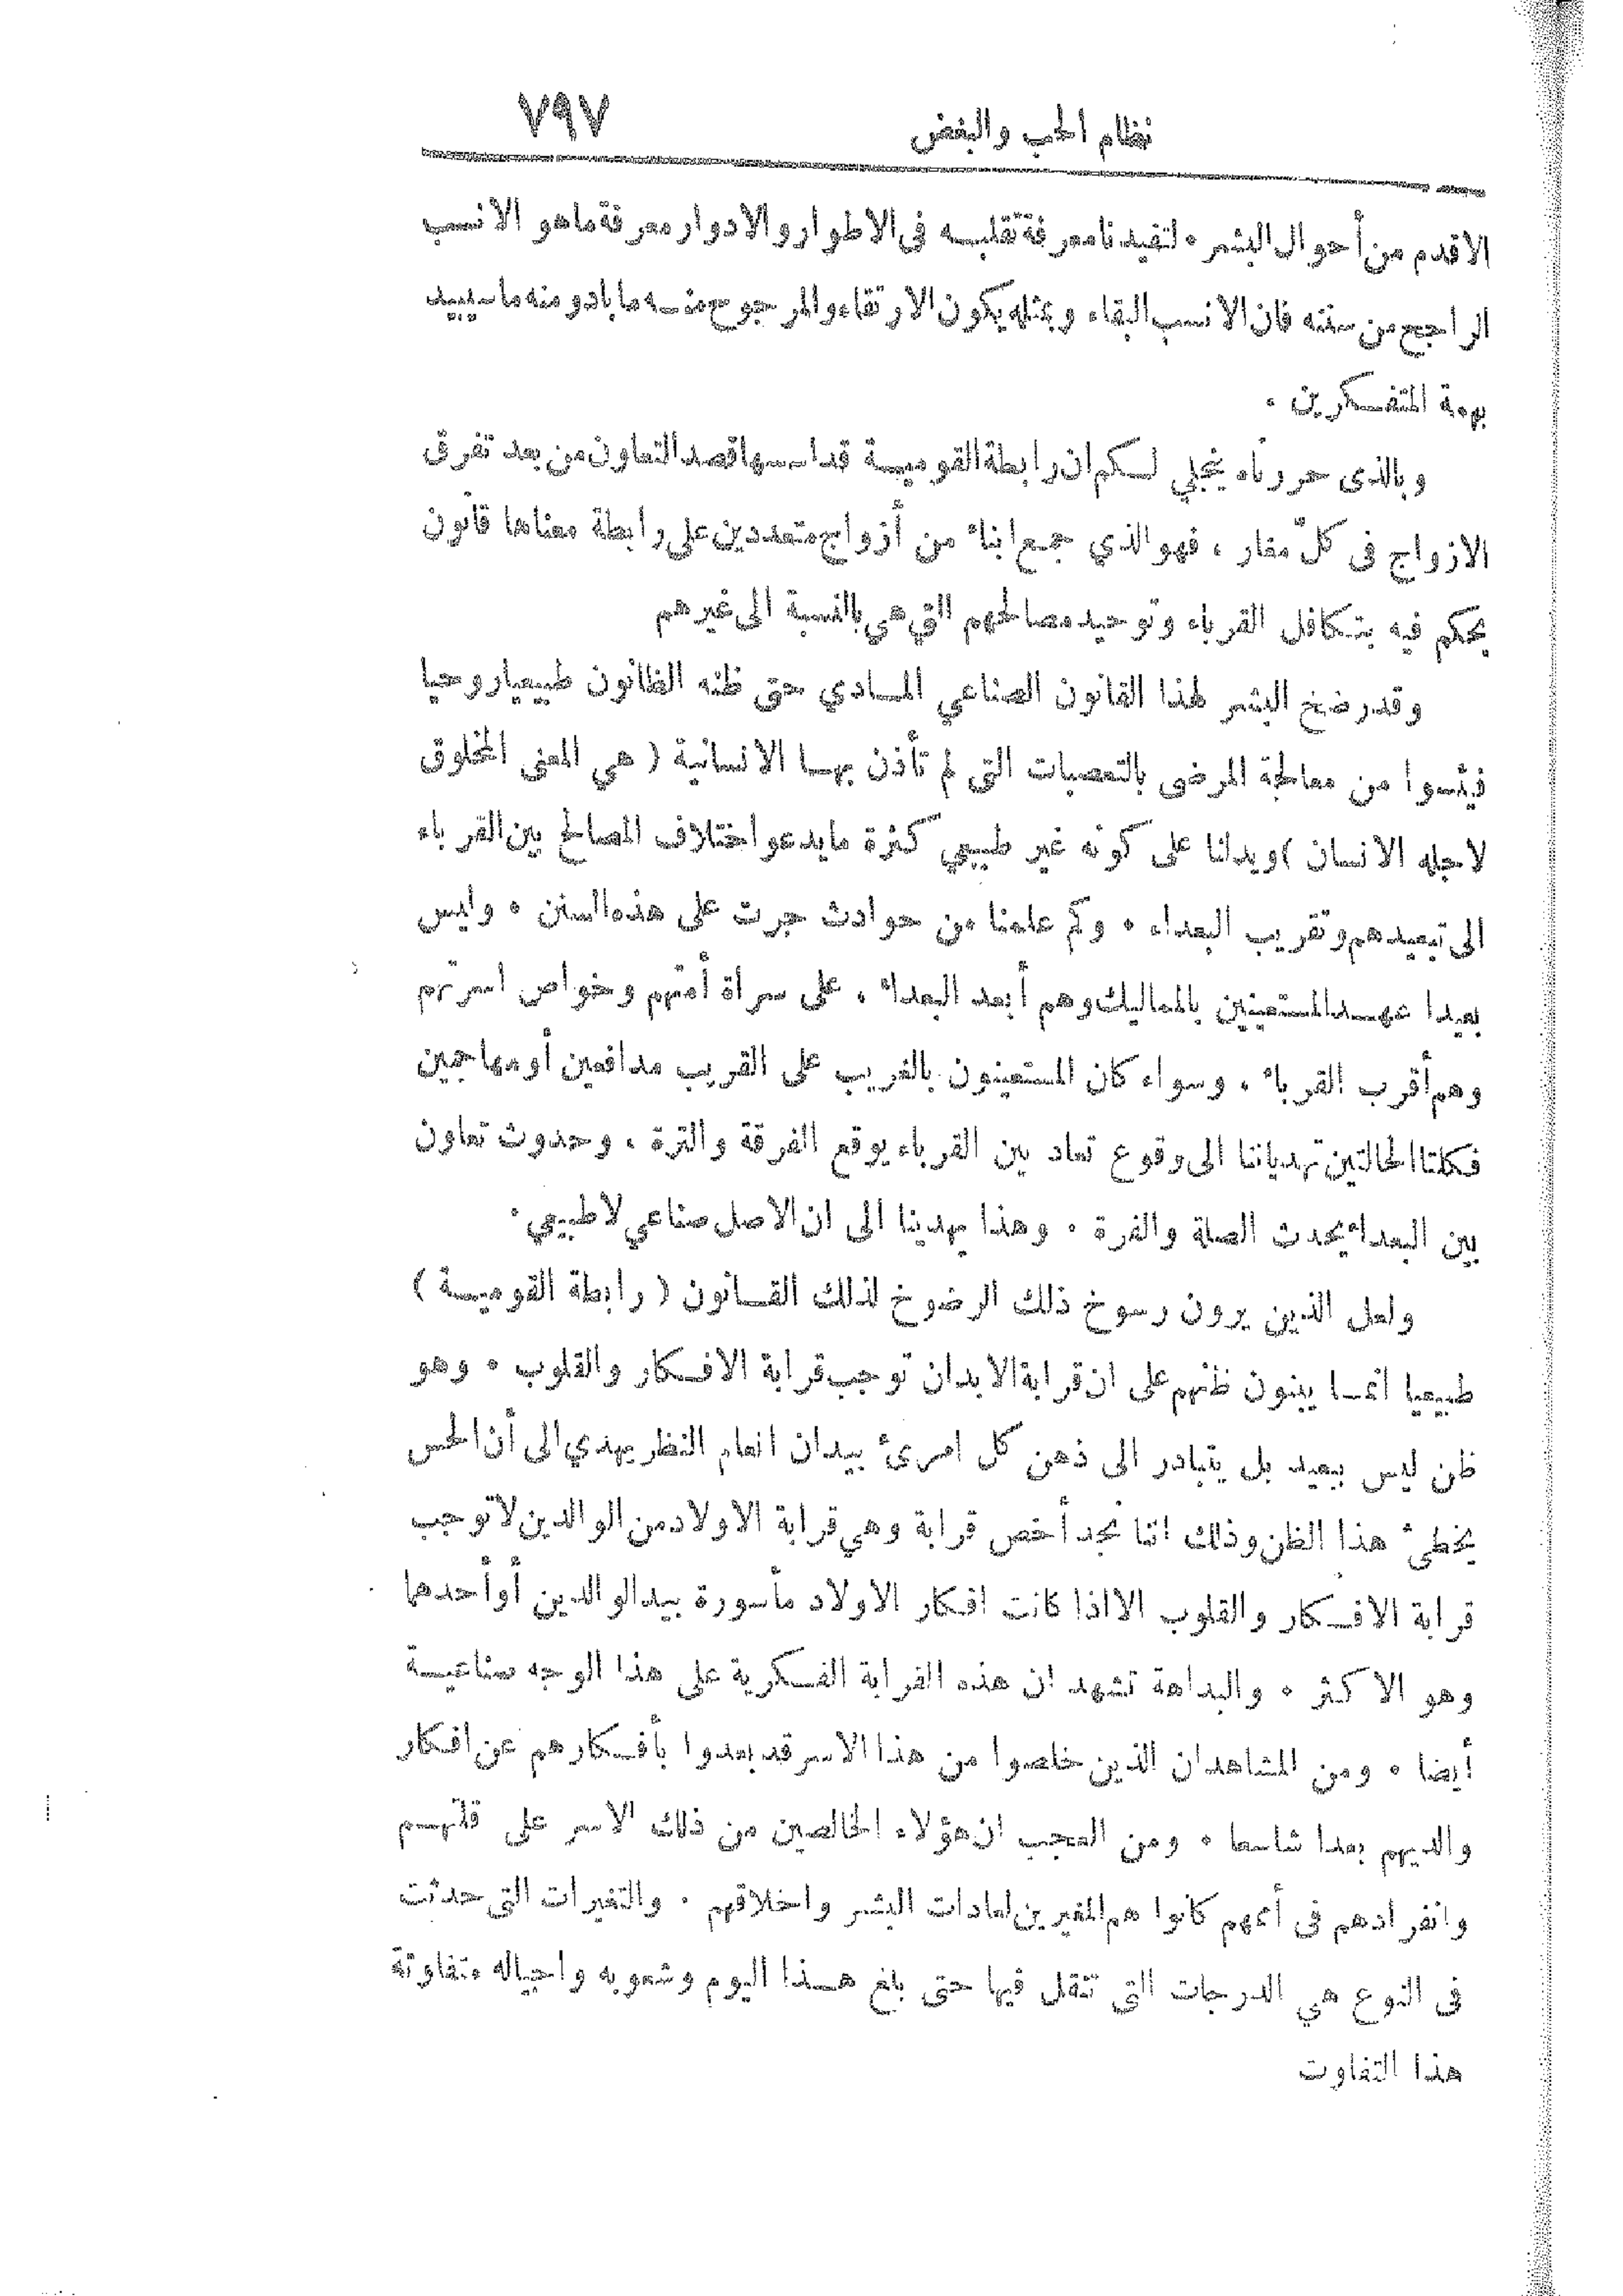 نظام الحب والبغض ٧٩٧
الاقدم من أحوال البشر ٠ لتفيدنا معرفة تقلبه فى الاطوار والادوار معرفة ماهو الانسب
الراجح من سننه فان الانسب البقاء وبمثله يكون الارتقاء والمرجوح منه ما باد ومنه ما سيبيد
بهمة المتفكرين ٠
وبالذى حررناه ينجلي لكم ان رابطة القومية قد اسسها قصد التعاون من بعد تفرق
الازواج فى كلّ مغار ، فهو الذي جمع ابناء من أزواج متعددين على رابطة معناها قانون
يحكم فيه بتكافل القرباء وتوحيد مصالحهم التي هي بالنسبة الى غيرهم
وقد رضخ البشر لهذا القانون الصناعي المادي حتى ظنه الظانون طبيعيا روحيا
فيئسوا من معالجة المرضى بالتعصبات التي لم تأذن بها الانسانية ( هي المعنى المخلوق
لاجله الانسان ) ويدلنا على كونه غير طبيعي كثرة مايدعو اختلاف المصالح بين القرباء
الى تبعيدهم وتقريب البعداء ٠ وكم علمنا من حوادث جرت على هذه السنن ٠ وليس
بعيدا عهد المستعينين بالمماليك وهم أبعد البعداء ، على سراة أمتهم وخواص اسرتهم
وهم أقرب القرباء ، وسواء كان المستعينون بالغريب على القريب مدافعين أو مهاجمين
فكلتا الحالتين تهدياننا الى وقوع تعاد بين القرباء يوقع الفرقة والترة ، وحدوث تعاون
بين البعداء يحدث الصلة والقرة ٠ وهذا يهدينا الى ان الاصل صناعي لا طبيعي ٠
ولعل الذين يرون رسوخ ذلك الرضوخ لذلك القانون ( رابطة القومية )
طبيعيا انما يبنون ظنهم على ان قرابة الابدان توجب قرابة الافكار والقلوب ٠ وهو
ظن ليس ببعيد بل يتبادر الى ذهن كل امرئ بيد ان انعام النظر يهدي الى أن الحس
يخطئ هذا الظن وذلك اننا نجد أخص قرابة وهي قرابة الاولاد من الوالدين لا توجب
قرابة الافكار والقلوب الا اذا كانت افكار الاولاد مأسورة بيد الوالدين أو أحدهما
وهو الاكثر ٠ والبداهة تشهد ان هذه القرابة الفكرية على هذا الوجه صناعية
أيضا ٠ ومن المشاهد ان الذين خلصوا من هذا الاسر قد بعدوا بأفكارهم عن افكار
والديهم بعدا شاسعا ٠ ومن العجب ان هؤلاء الخالصين من ذلك الاسر على قلتهم
وانفرادهم فى أممهم كانوا هم المغيرين لعادات البشر واخلاقهم ٠ والتغيرات التى حدثت
فى النوع هي الدرجات التى تنقل فيها حتى بلغ هذا اليوم وشعوبه واجياله متفاوتة
هذا التفاوت